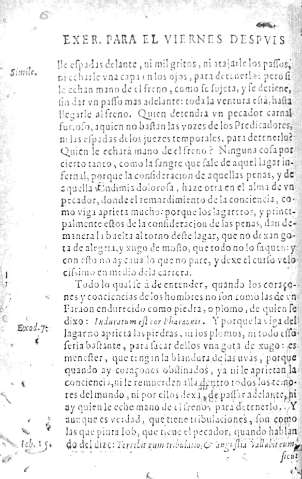 EXER. PARA EL VIERNES DESPVIS
lle espadas delante, ni mil gritos, ni atajarle los passos,
Simile.
ni echarle vna capa en los ojos, para detenerle: pero si
le echan mano de el freno, como se sujeta, y se detiene,
sin dar vn passo mas adelante: toda la ventura està, hasta
llegarle al freno. Quien detendrà vn pecador carnal
furioso, aquien no bastan las vozes de los Predicadores,
ni las espadas de los juezes temporales, para detenerlo?
Quien le echarà mano de el freno? Ninguna cosa por
cierto tanto, como la sangre que sale de aquel lagar in-
fernal, porque la consideracion de aquellas penas, y de
aquella vendimia dolorosa, haze otra en el alma de vn
pecador, donde el remordimiento de la conciencia, co-
mo viga aprieta mucho: porque los lagareros, y princi-
palmente estos de la consideracion de las penas, dan de
manera la buelta al torno deste lagar, que no dexan go-
ta de alegria, y xugo de mosto, que todo no lo saquen: y
con esto no ay caua lo que no pare, y dexe el curso velo
cissimo en medio de la carrera.
Todo lo qual se à de entender, quando los coraço-
nes y conciencias de los hombres no son como las de vn
Faraon endurecido como piedra, o plomo, de quien se
Exod. 7.
dixo: Induratum est cor Pharaonis. Y porque la viga del
lagar no aprieta las piedras, ni los plomos, ni todo esso
seria bastante, para sacar dellos vna gota de xugo: es
menester, que tengan la blandura de las uvas, porque
quando ay coraçones obstinados, ya ni le aprietan la
conciencia, ni le remuerden alla dentro todos los temo-
res del mundo, ni por ellos dexa de passar adelante, ni
ay quien le eche mano de el freno para detenerlo. Y
aunque es verdad, que tiene tribulaciones, son como
las que pinta Iob, que tiene el pecador, quando hablan
Iob. 15.
do del dize: Terrebit eum tribulatio, & angustia vallabit eum
sicut